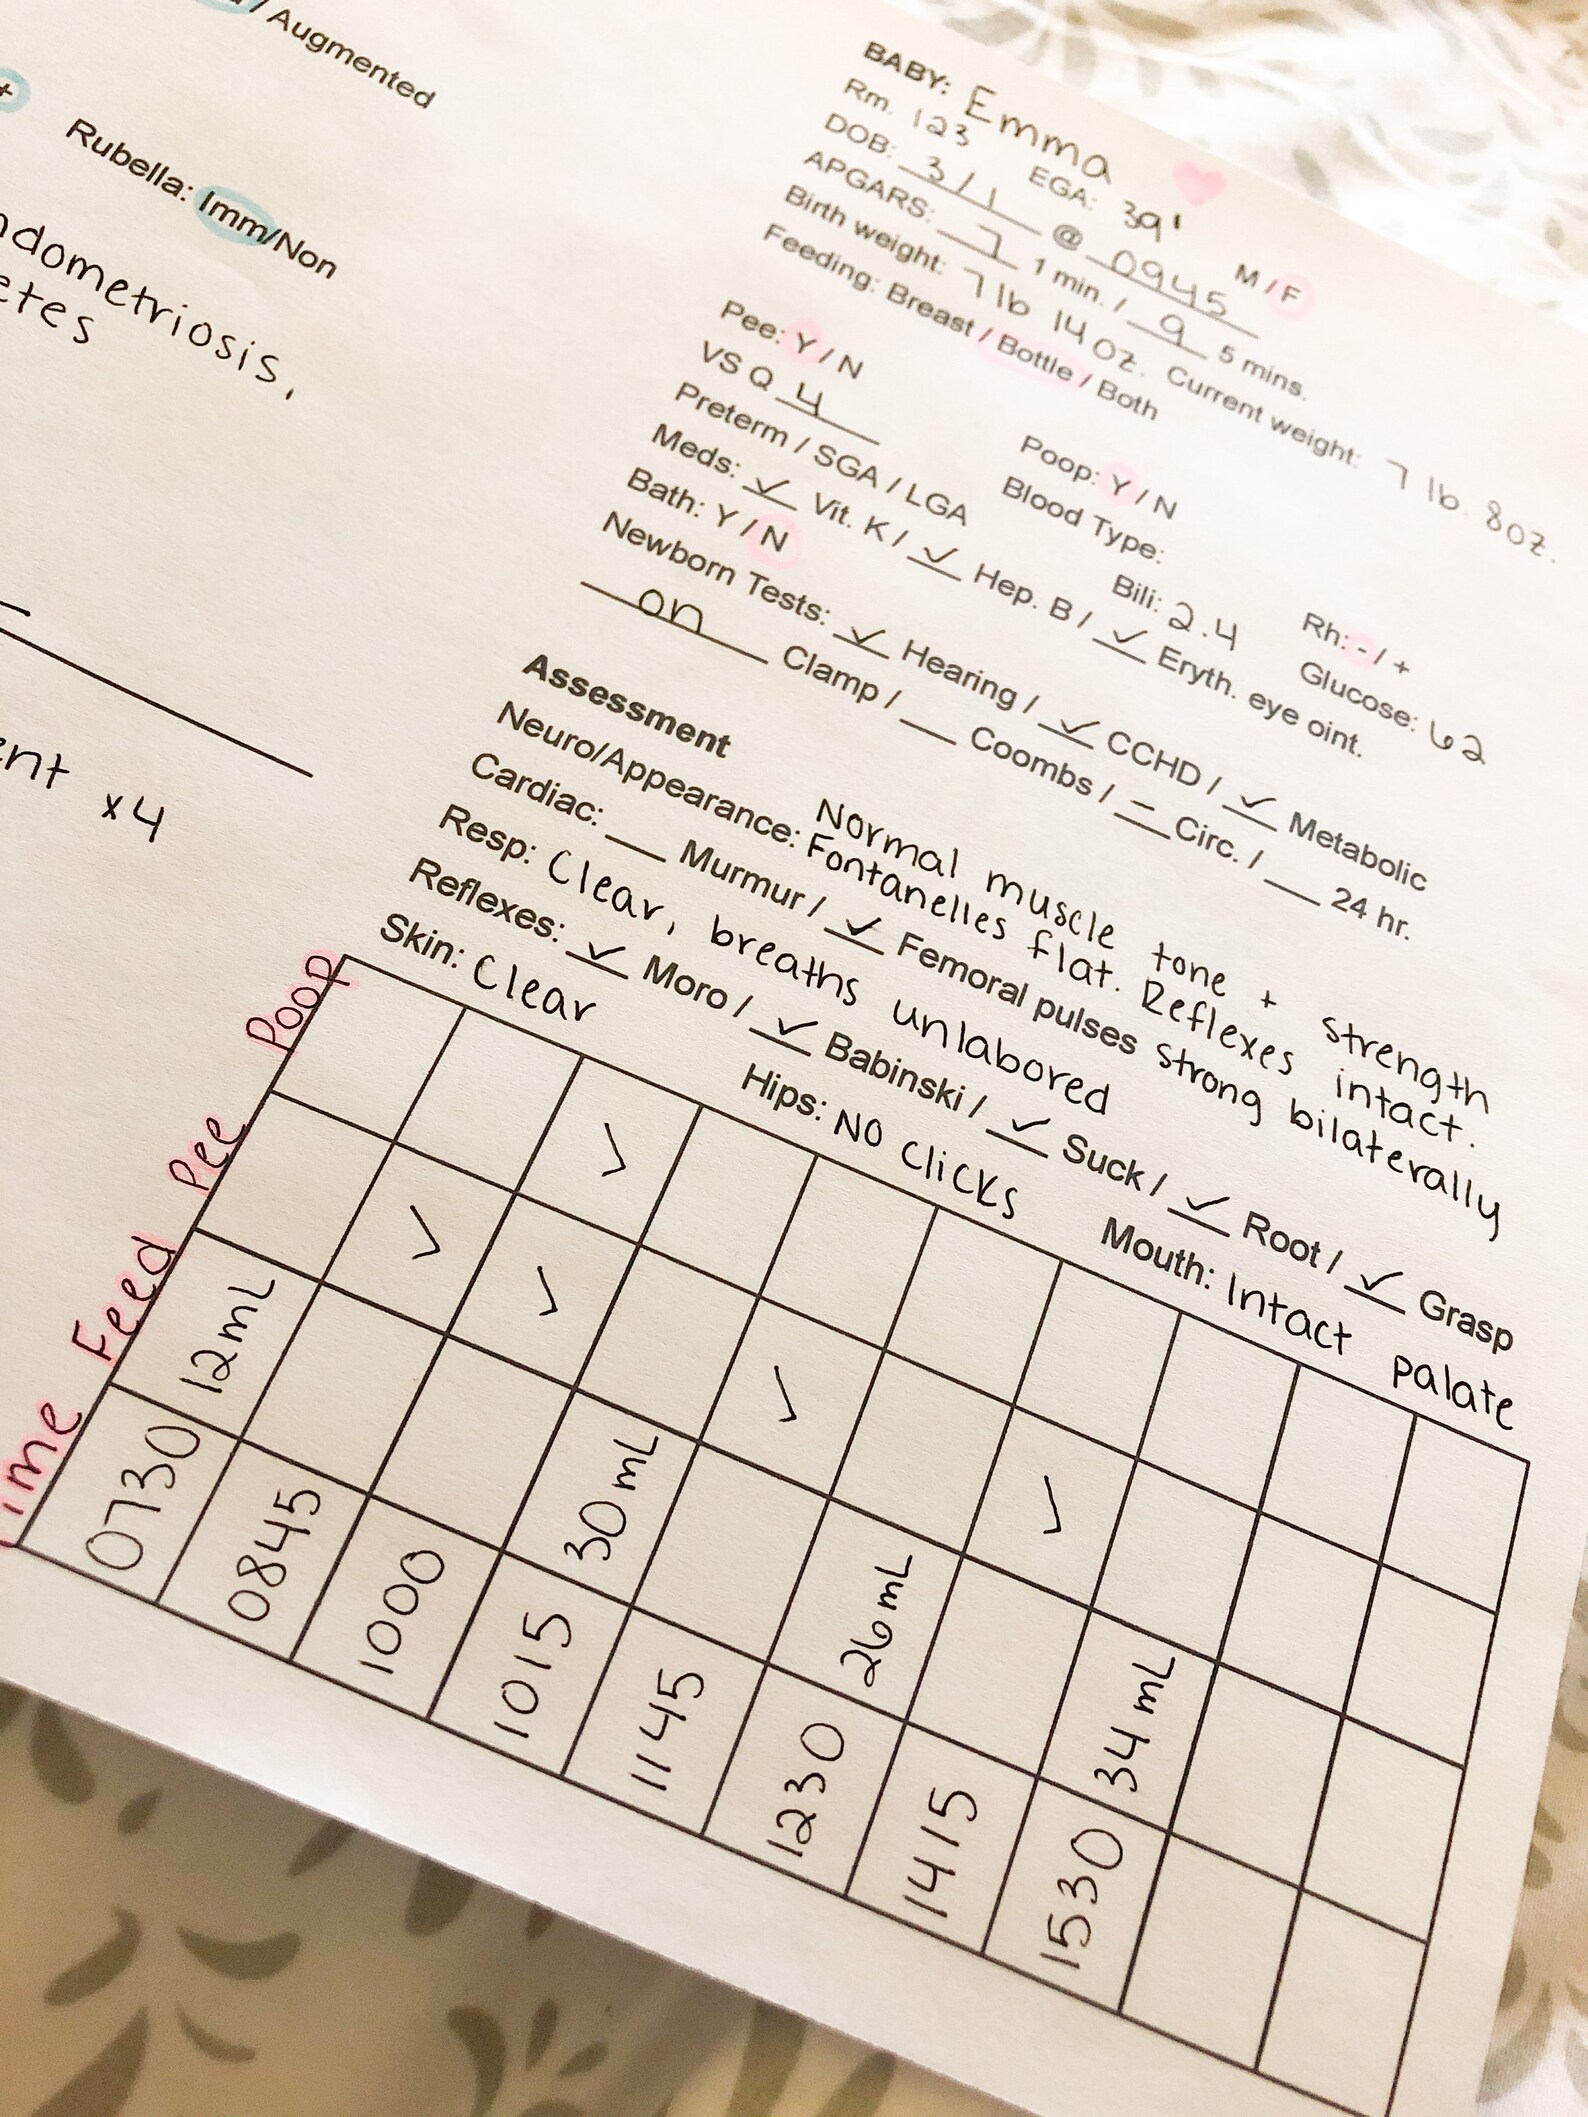 / Augmented
+
Rubella: Imm/Non
etes
x4
BABY: Emma
Rm. 123 EGA: 39¹ M / F
DOB: 3/1 @ 0945
APGARS: 7 1 min. / 9 5 mins.
Birth weight: 7 lb 14 oz. Current weight: 7 lb. 8oz.
Feeding: Breast / Bottle / Both
Pee: Y / N Poop: Y / N
VS Q 4 Blood Type: Rh: - / +
Preterm / SGA / LGA Bili: 2.4 Glucose: 62
Meds: ✓ Vit. K / ✓ Hep. B / ✓ Eryth. eye oint.
Bath: Y / N
Newborn Tests: ✓ Hearing / ✓ CCHD / ✓ Metabolic
on Clamp / __ Coombs / - Circ. / __ 24 hr.
Assessment
Neuro/Appearance: Normal muscle tone + strength
Fontanelles flat. Reflexes intact.
Cardiac: __ Murmur / ✓ Femoral pulses strong bilaterally
Resp: Clear, breaths unlabored
Reflexes: ✓ Moro / ✓ Babinski / ✓ Suck / ✓ Root / ✓ Grasp
Skin: Clear Hips: NO clicks Mouth: Intact palate
Feed Pee Poop
0730 12mL
0845 ✓
1000 ✓ ✓
1015 30 mL
1145 ✓
1230 26 mL
1415 ✓
1530 34 mL